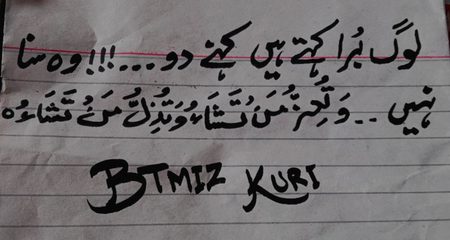 لوگ بُرا کہتے ہیں کہنے دو...!!! وہ سنا
نہیں .. وَتُعِزُّ مَن تَشَاءُ وَتُذِلُّ مَن تَشَاءُ ہ
BTMIZ KURI